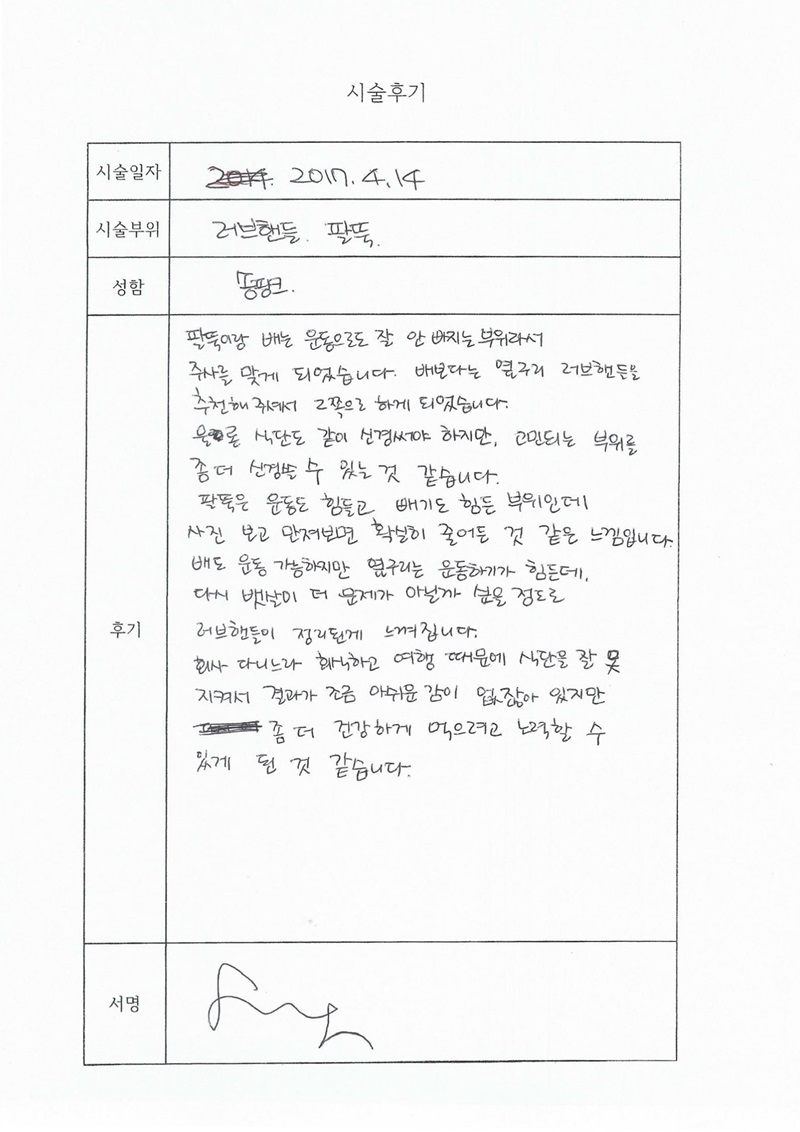 시술후기
시술일자 2017. 4. 14
시술부위 러브핸들. 팔뚝.
성함 뽕팡크.
후기
팔뚝이랑 배는 운동으로도 잘 안 빠지는 부위라서
주사를 맞게 되었습니다. 배보다는 옆구리 러브핸든을
추천해 주셔서 그쪽으로 하게 되었습니다.
물론 식단도 같이 신경써야 하지만, 고민되는 부위를
좀 더 신경쓸 수 있는 것 같습니다.
팔뚝은 운동도 힘들고 빼기도 힘든 부위인데
사진 보고 만져보면 확실히 줄어든 것 같은 느낌입니다.
배도 운동 가능하지만 옆구리는 운동하기가 힘든데,
다시 뱃살이 더 문제가 아닐까 싶을 정도로
러브핸들이 정리된게 느껴집니다.
회사 다니느라 회식하고 여행 때문에 식단을 잘 못
지켜서 결과가 조금 아쉬운 감이 없잖아 있지만
좀 더 건강하게 먹으려고 노력할 수
있게 된 것 같습니다.
서명